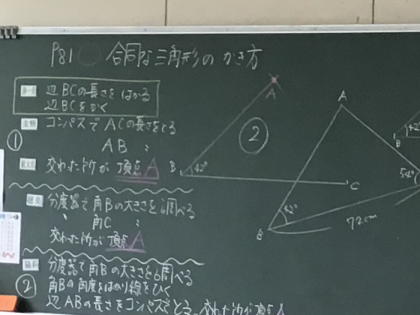 P81 合同な三角形のかき方
辺BCの長さをはかる
辺BCをかく
① コンパスでACの長さをとる
AB 〃
交わった所が頂点A
分度器で角Bの大きさを調べる
〃 角C 〃
交わった所が頂点A
② 分度器で角Bの大きさを調べる
角Bの角度をはかり線をひく
辺ABの長さをコンパスでとる
②
A
B
C
A
B
7.2cm